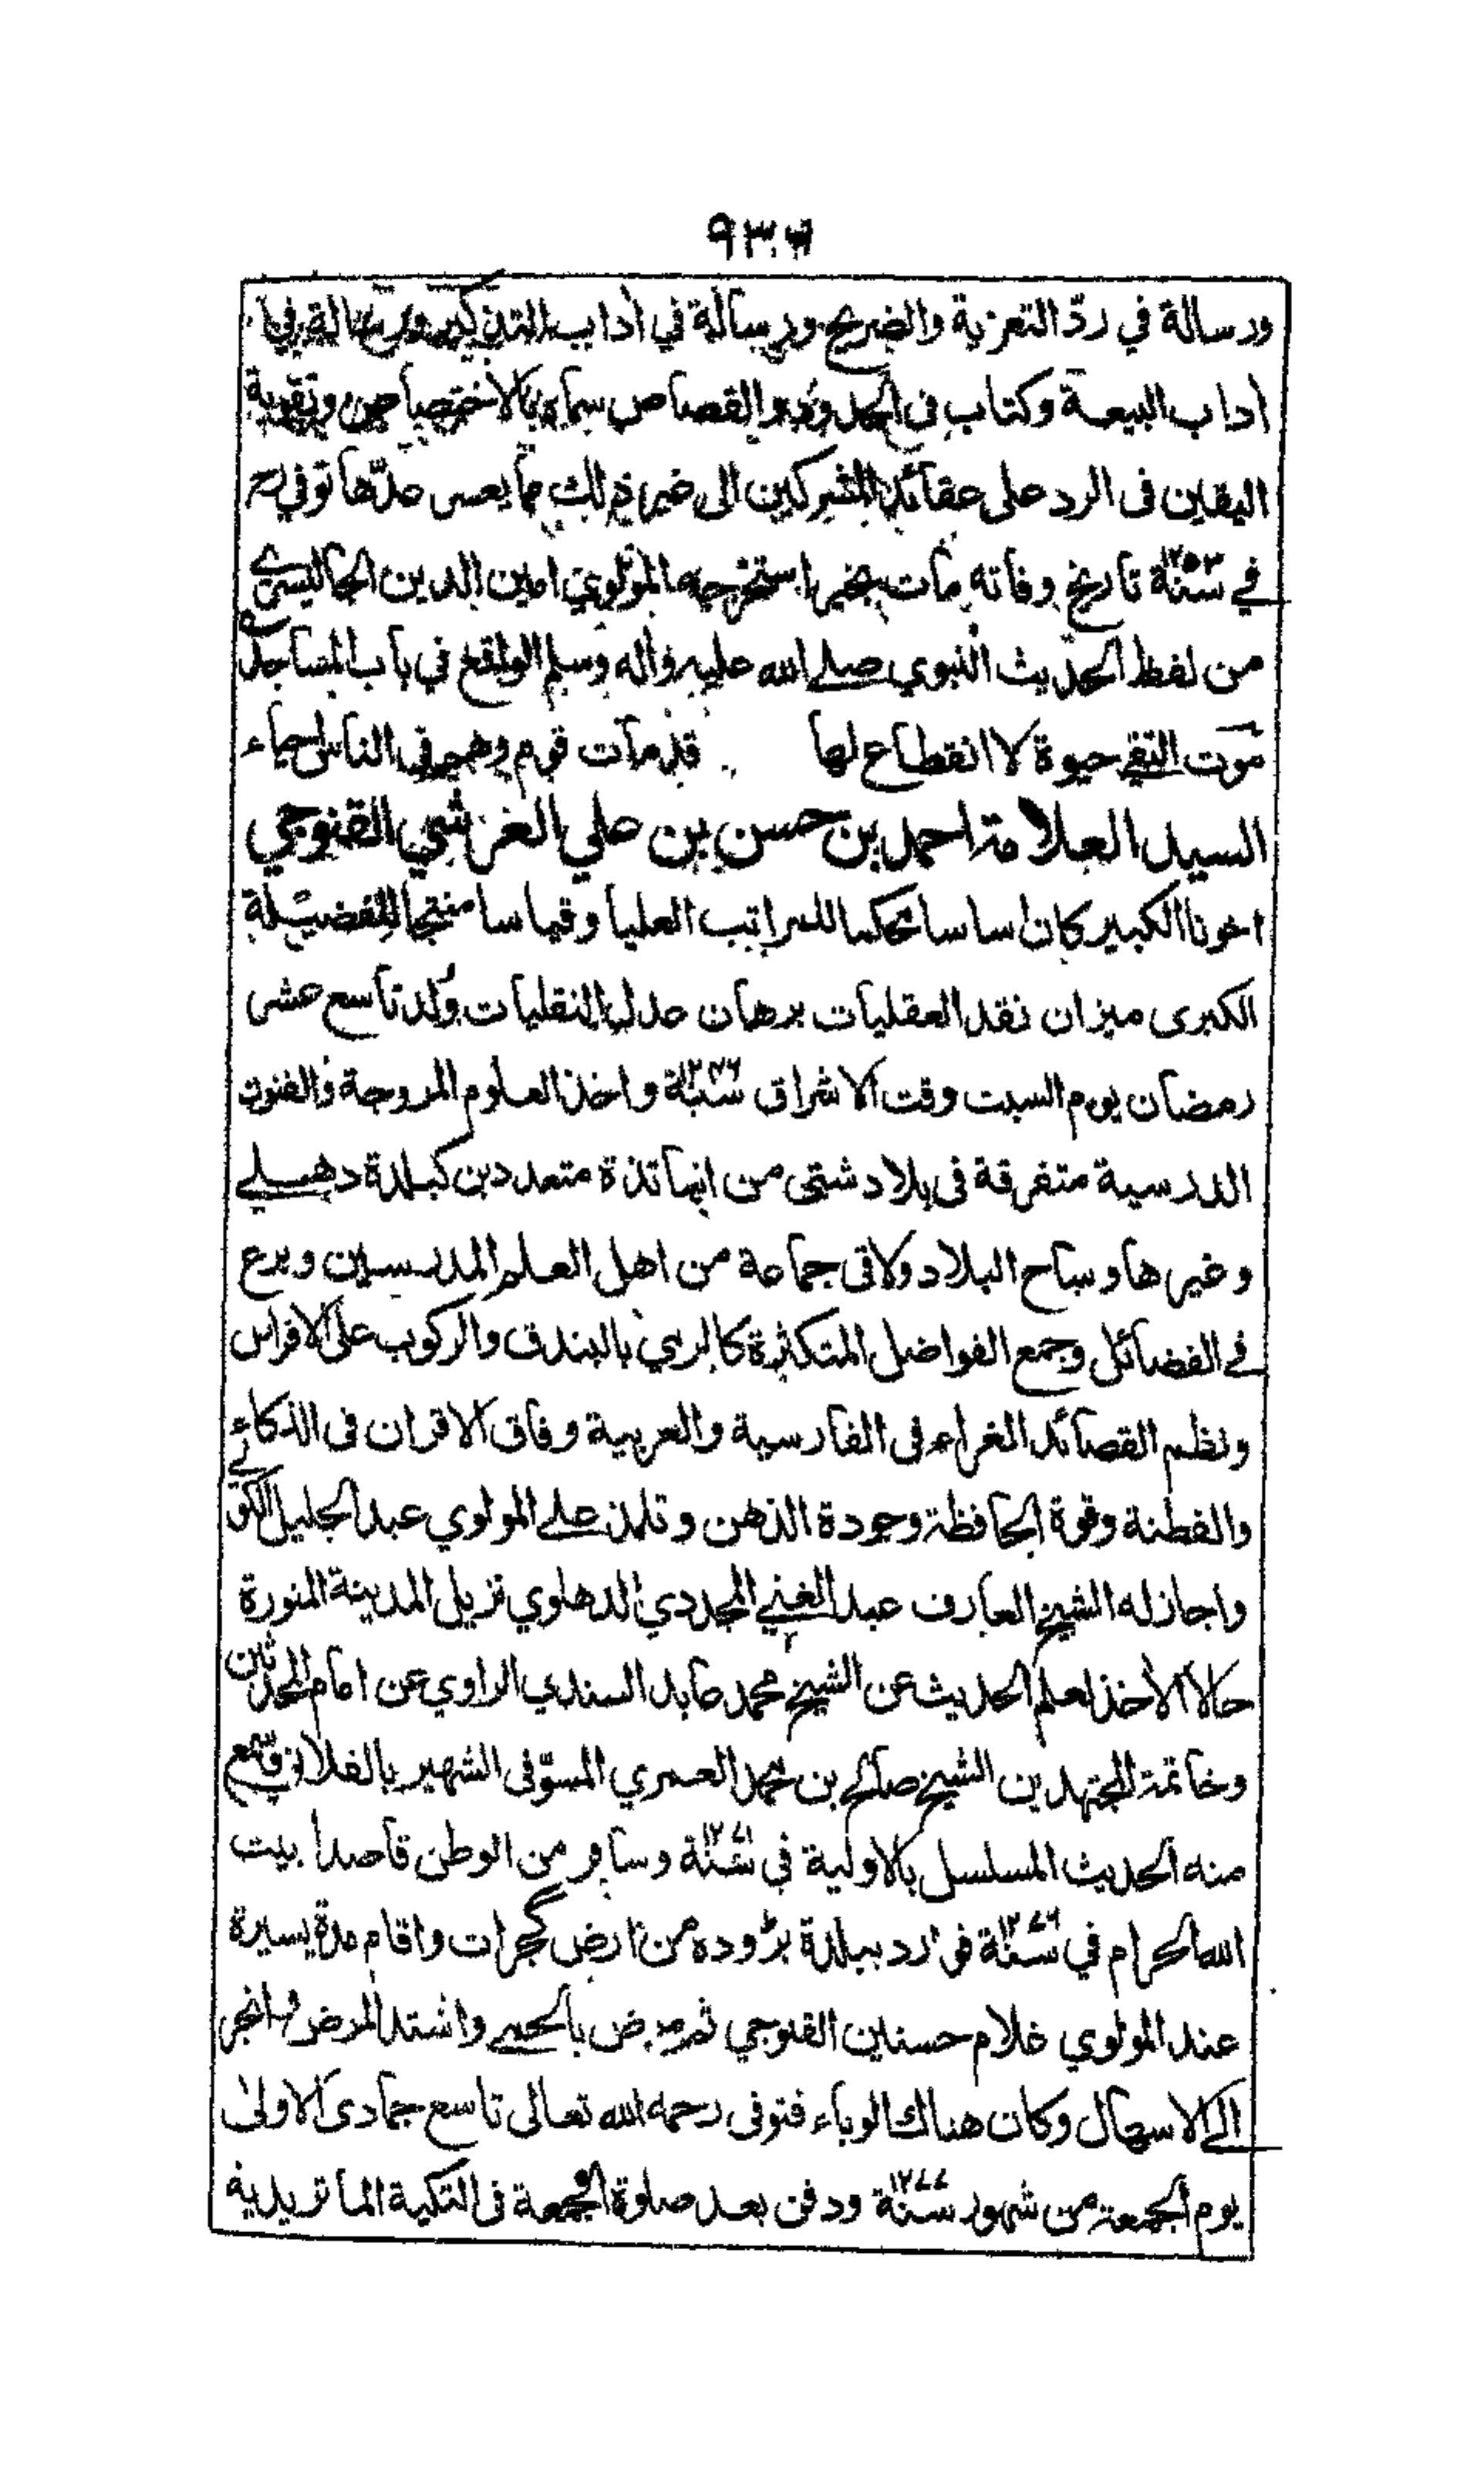 ٩٣٦
ورسالة في ردّ التعزية والضريح ورسالة في أداب التذكير ورسالة في
اداب البيعة وكتاب فى الحدود والقصاص سماه بالاختصاص وتقوية
اليقين فى الرد على عقائد المشركين الى غير ذلك مما يعسر عدّها توفي رح
في سنة ١٢٥٣ تاريخ وفاته مات بخير استخرجه المولوي امين الدين الجاليسري
من لفظ الحديث النبوي صلى الله عليه واٰله وسلم الواقع في باب المساجد
موت التقي حيوة لا انقطاع لها قد مات قوم وهم فى الناس احياء
السيد العلامة احمد بن حسن بن علي العرشي القنوجي
اخونا الكبير كان اساسا محكما للمراتب العليا وقياسا منتجا للفضيلة
الكبرى ميزان نقد العقليات برهان عدل النقليات وُلد تاسع عشر
رمضان يوم السبت وقت الاشراق سنة ١٢٤٦ واخذ العلوم المروجة والفنون
الدرسية متفرقة فى بلاد شتى من اساتذة متعددين كبلدة دهلي
وغيرها وساح البلاد ولاقى جماعة من اهل العلم المدرسين وبرع
في الفضائل وجمع الفواضل المتكثرة كالرمي بالبندق والركوب على الافراس
ونظم القصائد الغراء فى الفارسية والعربية وفاق الاقران فى الذكاء
والفطنة وقوة الحافظة وجودة الذهن وتلمذ على المولوي عبد الجليل الكوئلي
واجاز له الشيخ العارف عبد الغني المجددي الدهلوي نزيل المدينة المنورة
حالا الأخذ لعلم الحديث عن الشيخ محمد عابد السندي الراوي عن امام المحدثين
وخاتمة المجتهدين الشيخ صالح بن محمد العمري المسوّفى الشهير بالفلاني وسمع
منه الحديث المسلسل بالاولية في سنة وسافر من الوطن قاصدا بيت
الله الحرام في سنة ١٢٧٦ فورد ببلدة بڑوده من ارض گجرات واقام مدة يسيرة
عند المولوي غلام حسنين القنوجي ثم مرض بالحمى واشتد المرض وانجر
الى الاسهال وكان هناك الوباء فتوفى رحمه الله تعالى تاسع جمادى الاولى
يوم الجمعة من شهور سنة ١٢٧٧ ودفن بعد صلوة الجمعة فى التكية الماتريدية